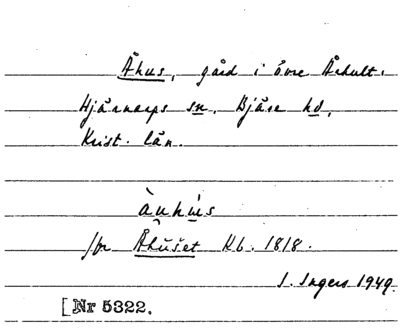 Åhus, gård i övre Århult.
Hjärnarps sn. Bjäre hd,
Krist. län.
àuhùs
/or Åhuset Kb. 1818.
I. Ingers 1949.
[Nr 5322.